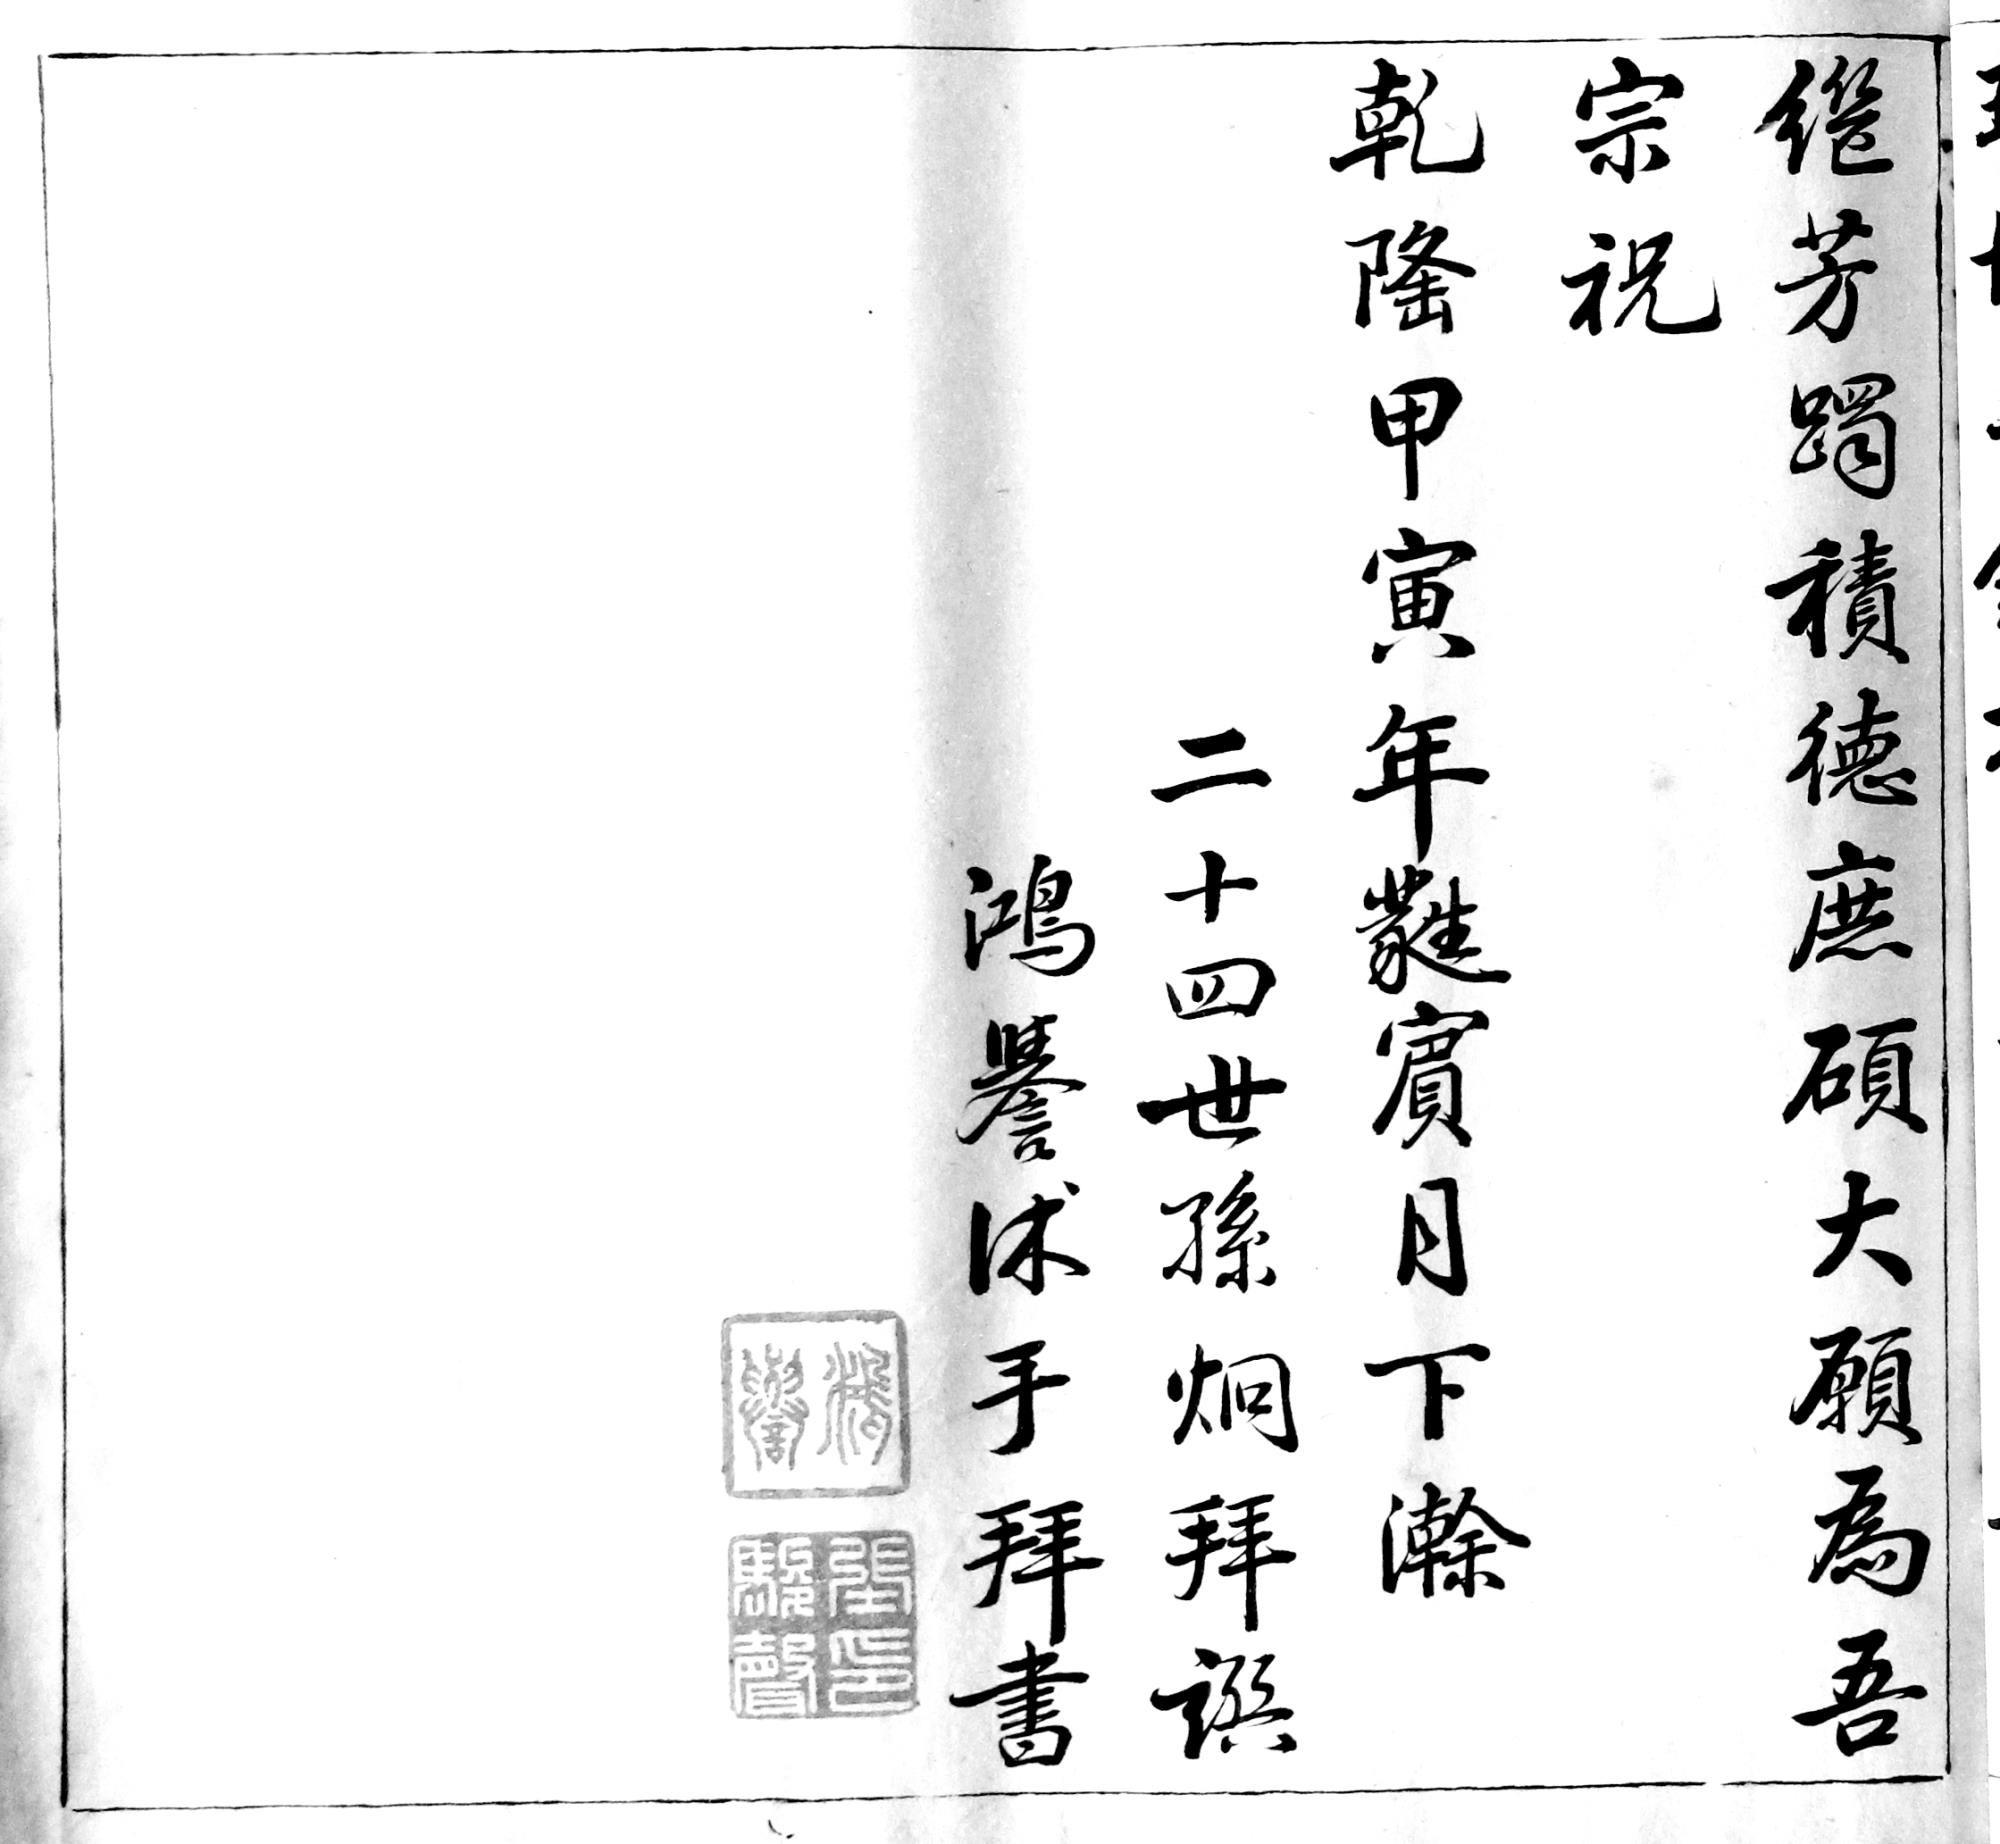 繼芳躅積德庶碩大願為吾
宗祝
乾隆甲寅年蕤賓月下澣
二十四世孫炯拜譔
鴻譽沐手拜書